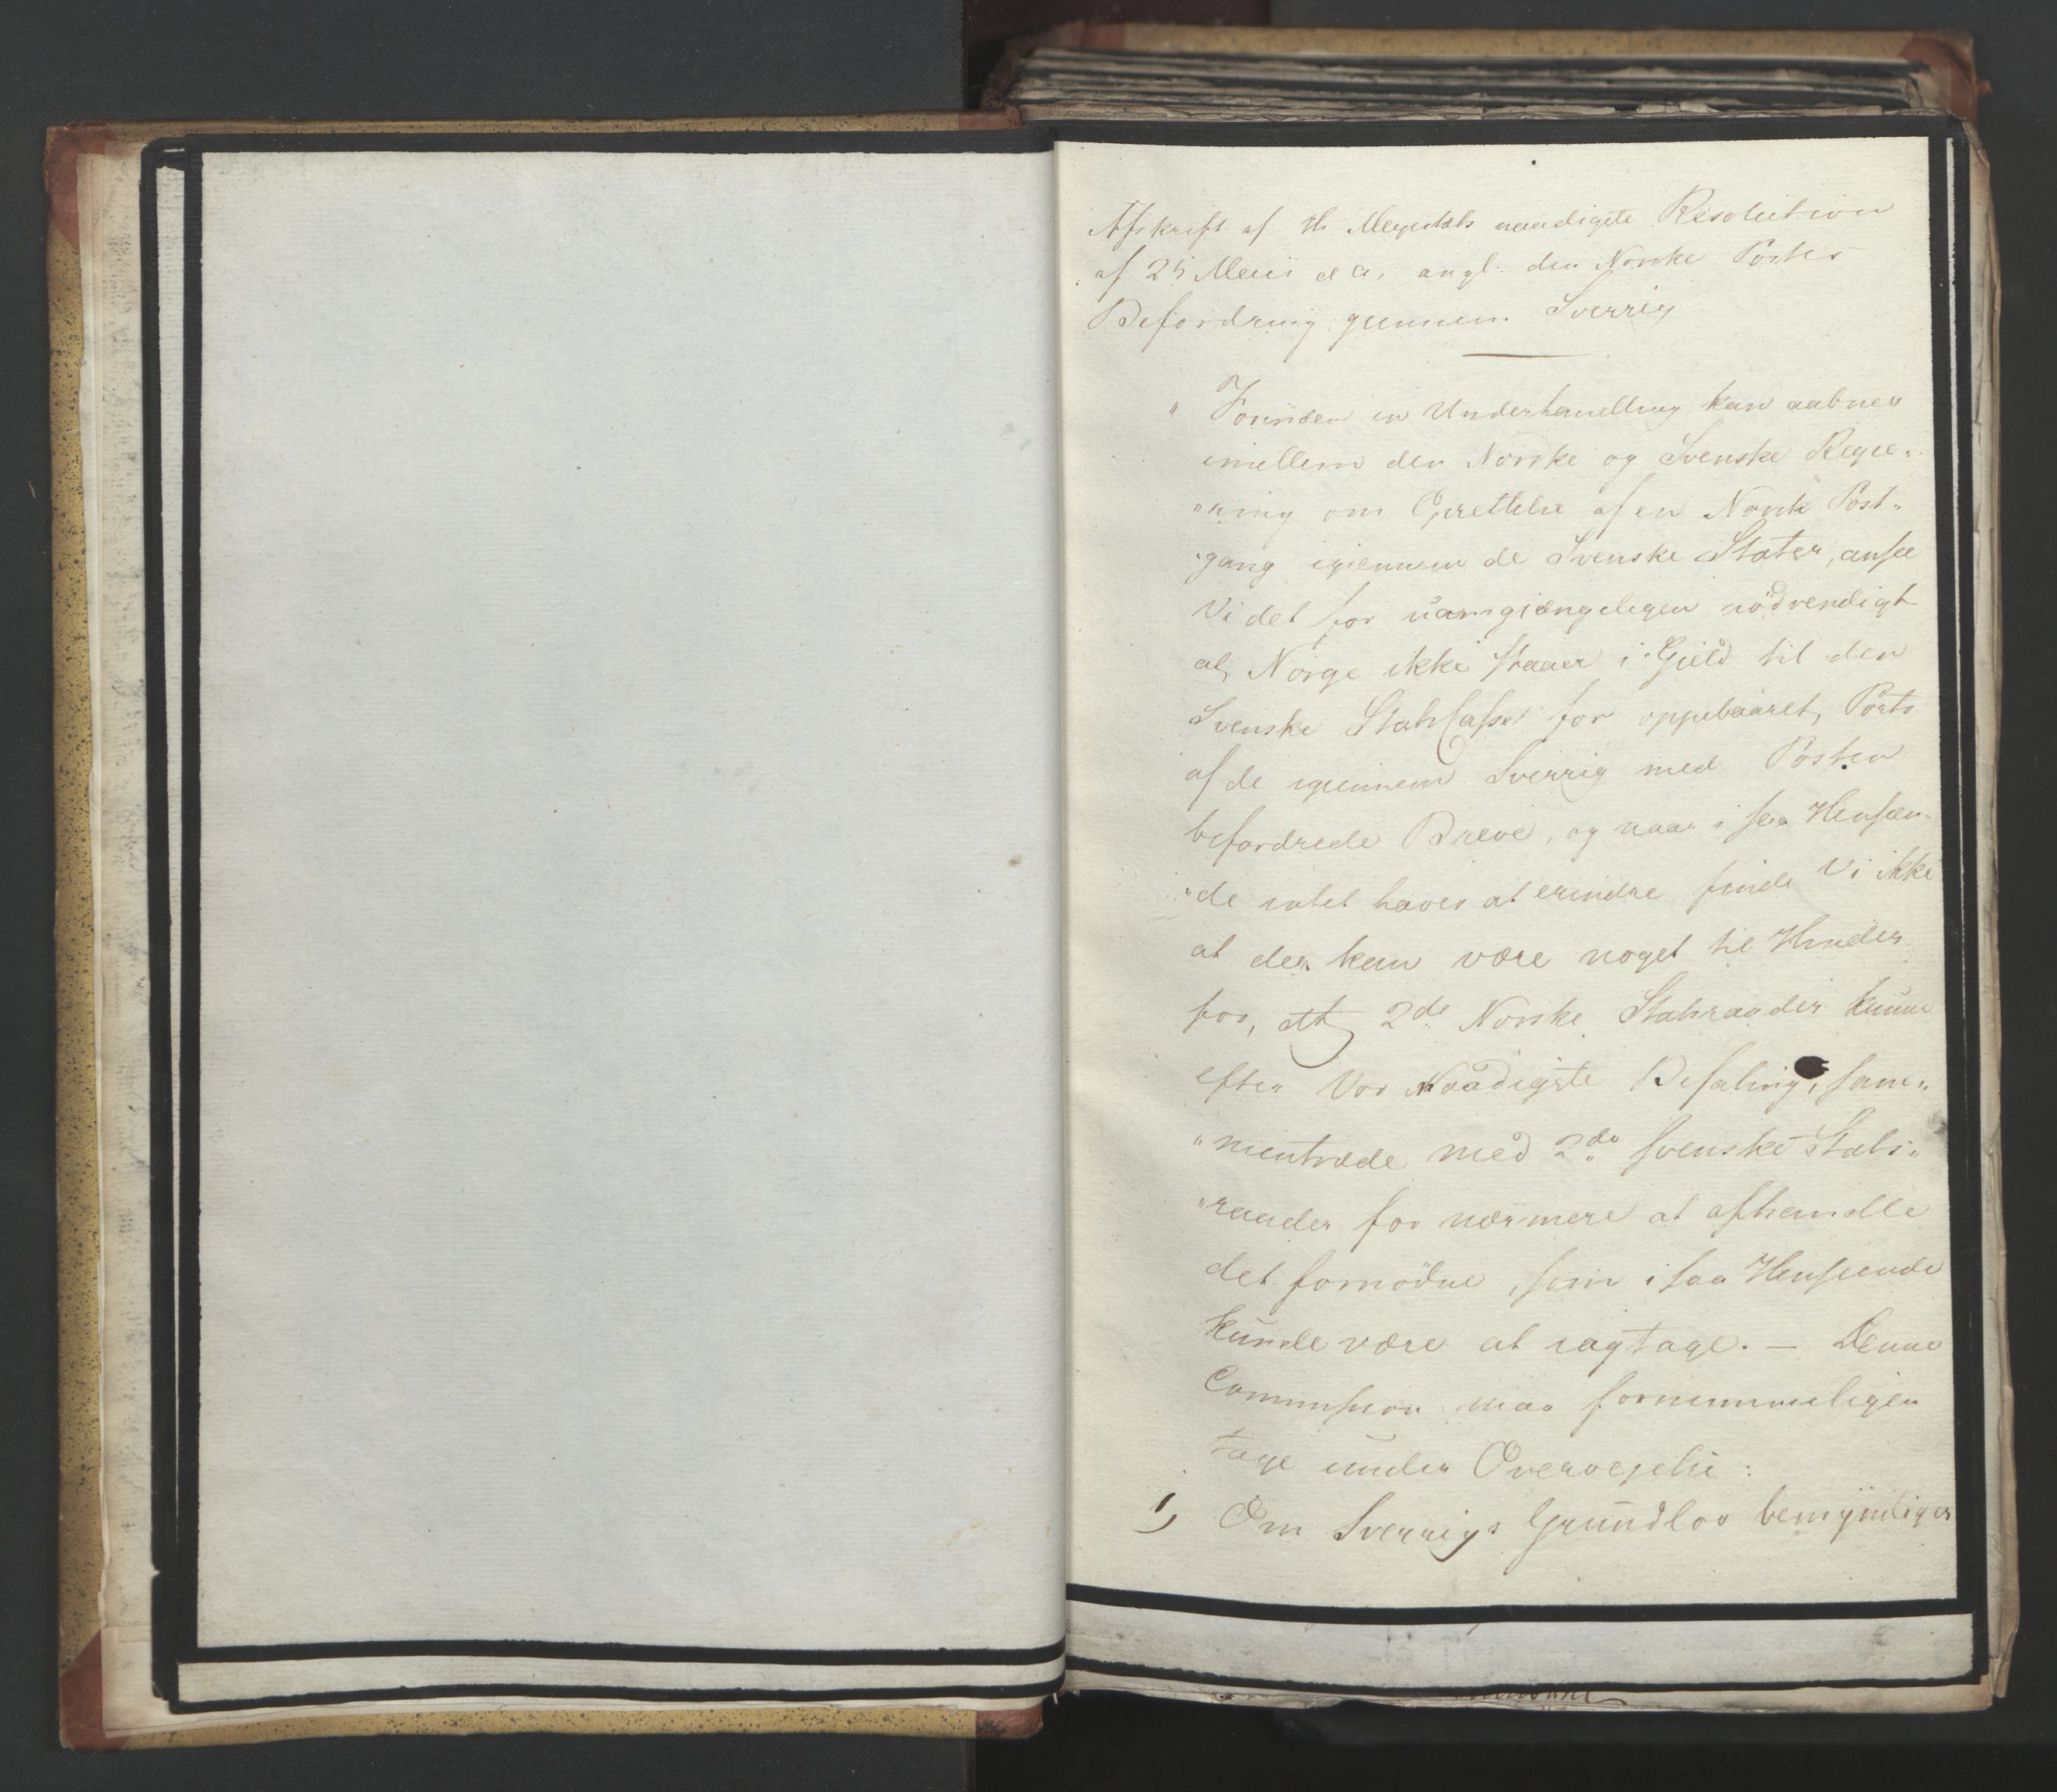 Afskrift af H. Majestæts naadigste Resolution
af 25 Maii d. A. angl. den Norske Postes
Befordring giennem Sverrig
" Forinden en Underhandling kan aabnes
imellem den Norske og Svenske Regie"
"ring om Oprettelse af en Norsk Post"
"gang igiennem de Svenske Stater, ansee
Vi det for uomgiængeligen nödvendigt
at Norge ikke staaer i Gield til den
Svenske StatsCasse for oppebaaret Porto
af de igiennem Sverrig med Posten
befordrede Breve, og naar i saa Henseen"
"de intet haves at erindre finde Vi ikke
at der kan være noget til Hinder
for, at 2de Norske Statsraader kunne
efter Vor Naadigste Befaling, sam"
"mentræde med 2de Svenske Stats"
"raader for nærmere at afhandle
det fornödne, som i saa Henseende
kunde være at iagttage. — Denne
Commission maa fornemmeligen
tage under Overveielse:
1) Om Sverrigs Grundlov bemyndiger